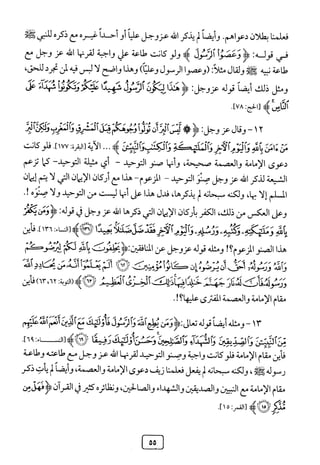 فعلمنا بطلان دعواهم. وأيضاً لم يذكر الله عزوجل علياً أو أحـداً غيـره مع ذكره للنبي ﷺ
في قوله: ﴿ وَعَصَوُا الرَّسُولَ ﴾ ولو كانت طاعة علي واجبة لقرنها الله عز وجل مع
طاعة نبيه ﷺ ولقال مثلاً: (وعصوا الرسول وعلياً) وهذا واضح لا لبس فيه لمن تجرد للحق،
ومثل ذلك أيضاً قوله عزوجل: ﴿ هَذَا لِيَكُونَ الرَّسُولُ شَهِيدًا عَلَيْكُمْ وَتَكُونُوا شُهَدَاءَ عَلَى
النَّاسِ ﴾ [الحج: ٧٨].
١٢- وقال عز وجل: ﴿ ۞ لَيْسَ الْبِرَّ أَنْ تُوَلُّوا وُجُوهَكُمْ قِبَلَ الْمَشْرِقِ وَالْمَغْرِبِ وَلَكِنَّ الْبِرَّ
مَنْ ءَامَنَ بِاللَّهِ وَالْيَوْمِ الْآخِرِ وَالْمَلَئِكَةِ وَالْكِتَبِ وَالنَّبِيِّنَ ﴾... الآية [البقرة: ١٧٧]. فلو كانت
دعوى الإمامة والعصمة صحيحة، وأنها صنو التوحيد - أي مثيلة التوحيد- كما تزعم
الشيعة لذكر الله عز وجل صِنْوَ التوحيد - المزعوم- هذا مع أركان الإيمان التي لا يتم إيمان
المسلم إلا بها، ولكنه سبحانه لم يذكرها، فدل هذا على أنها ليست من التوحيد ولا صِنْوَه !.
وعلى العكس من ذلك، الكفر بأركان الإيمان التي ذكرها الله عز وجل في قوله: ﴿ وَمَن يَكْفُرْ
بِاللَّهِ وَمَلَئِكَتِهِ وَكُتُبِهِ وَرُسُلِهِ وَالْيَوْمِ الْآخِرِ فَقَدْ ضَلَّ ضَلَلًا بَعِيدًا ١٣٦ ﴾ [النساء: ١٣٦]. فأين
هذا الصنو المزعوم؟! ومثله قوله عزوجل عن المنافقين: ﴿ يَحْلِفُونَ بِاللَّهِ لَكُمْ لِيُرْضُوكُمْ
وَاللَّهُ وَرَسُولُهُ أَحَقُّ أَن يُرْضُوهُ إِن كَانُوا مُؤْمِنِينَ ٦٢ أَلَمْ يَعْلَمُوا أَنَّهُ مَن يُحَادِدِ اللَّهَ
وَرَسُولَهُ فَأَنَّ لَهُ نَارَ جَهَنَّمَ خَلِدًا فِيهَا ذَلِكَ الْخِزْيُ الْعَظِيمُ ٦٣ ﴾ [التوبة: ٦٢، ٦٣] فأين
مقام الإمامة والعصمة المفترى عليها؟!.
١٣- ومثله أيضاً قوله تعالى: ﴿ وَمَن يُطِعِ اللَّهَ وَالرَّسُولَ فَأُولَئِكَ مَعَ الَّذِينَ أَنْعَمَ اللَّهُ عَلَيْهِم
مِّنَ النَّبِيِّنَ وَالصِّدِّيقِينَ وَالشُّهَدَاءِ وَالصَّلِحِينَ وَحَسُنَ أُولَئِكَ رَفِيقًا ٦٩ ﴾ [النساء: ٦٩].
فأين مقام الإمامة فلو كانت واجبة وصنو التوحيد لقرنها الله عز وجل مع طاعته وطاعة
رسوله ﷺ، ولكنه سبحانه لم يفعل فعلمنا زيف دعوى الإمامة والعصمة، وأيضاً لم يأت ذكر
مقام الإمامة مع النبيين والصديقين والشهداء والصالحين، ونظائره كثير في القرآن ﴿ فَهَلْ مِن
مُّدَّكِرٍ ١٥ ﴾ [القمر: ١٥].
٥٥